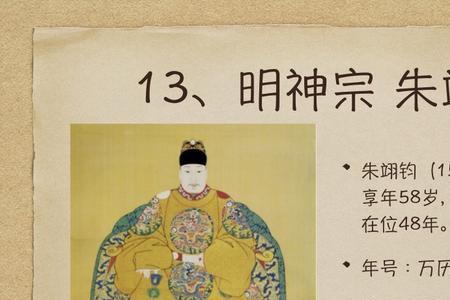 13、明神宗 朱
朱翊钧（15
享年58岁，
在位48年。
年号：万历